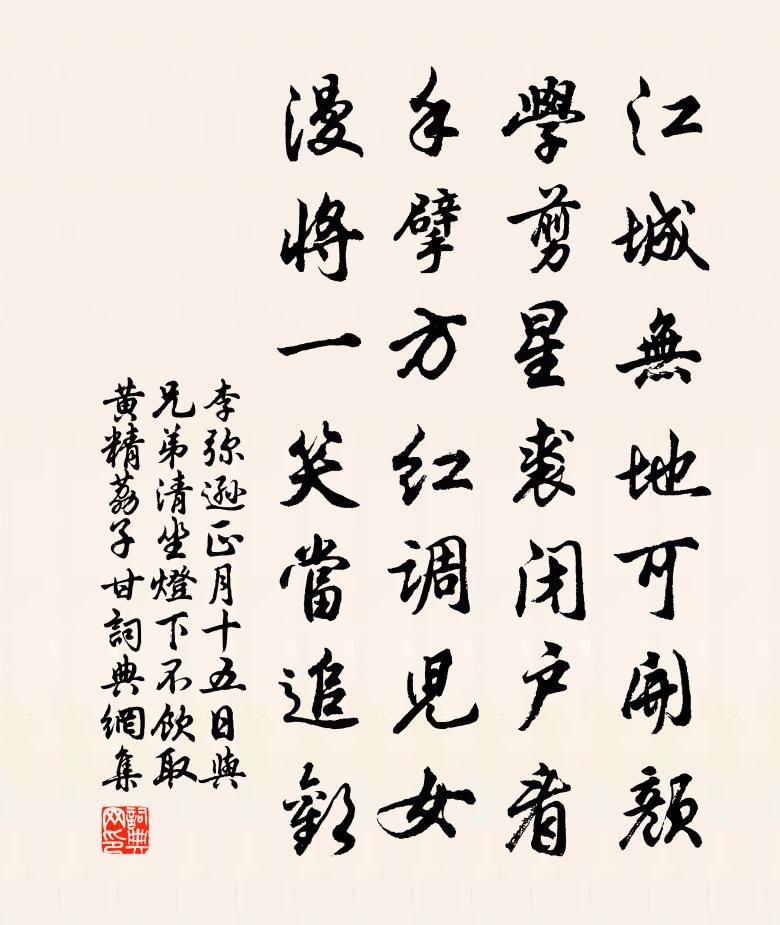 江城無地可開顔
學剪星裘闭户看
手擘方红调兒女
漫將一笑當追歡
李弥遜正月十五日與
兄弟清坐燈下不飲取
黄精荔子甘詞典網集
詞典网印